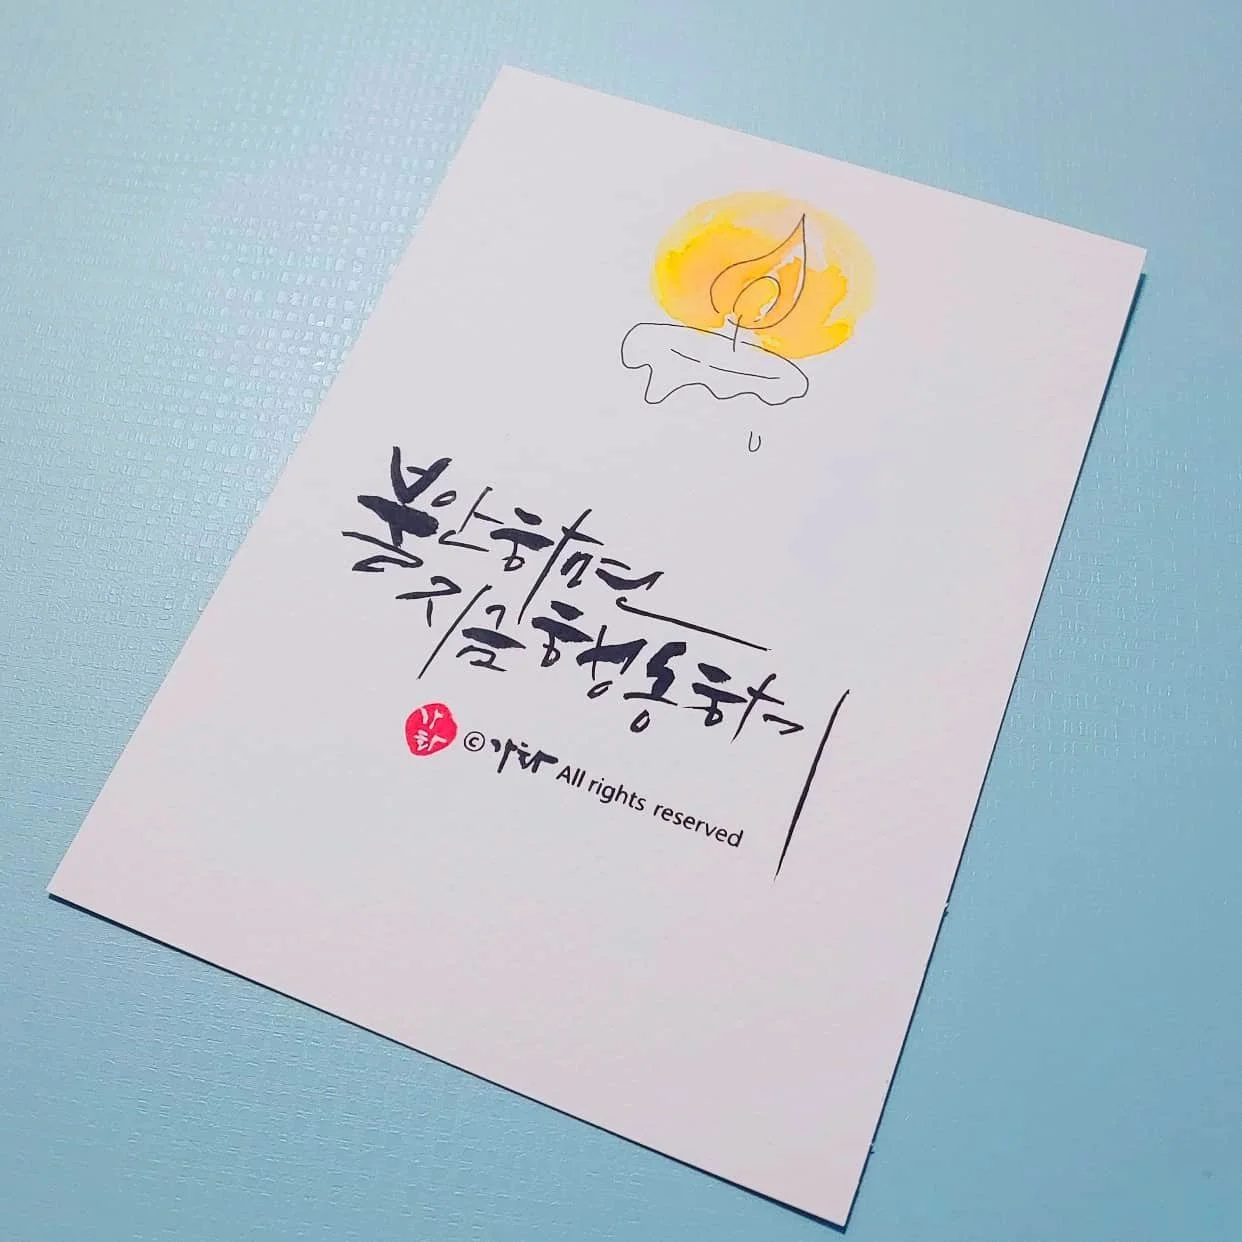 불안하면
지금 행동하기
© All rights reserved